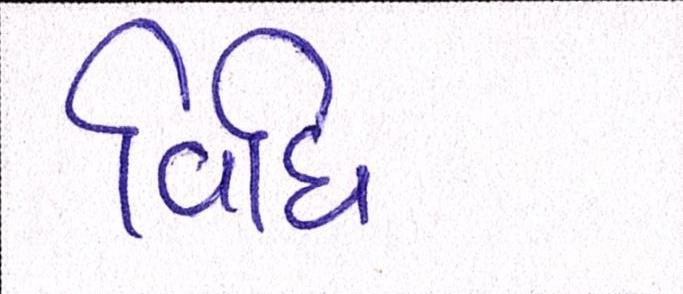 વિધિ